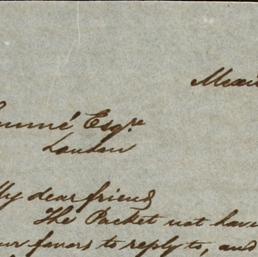 Mexi
Esqre
London
My dear friend
The Packet not hav
favors to reply to, and